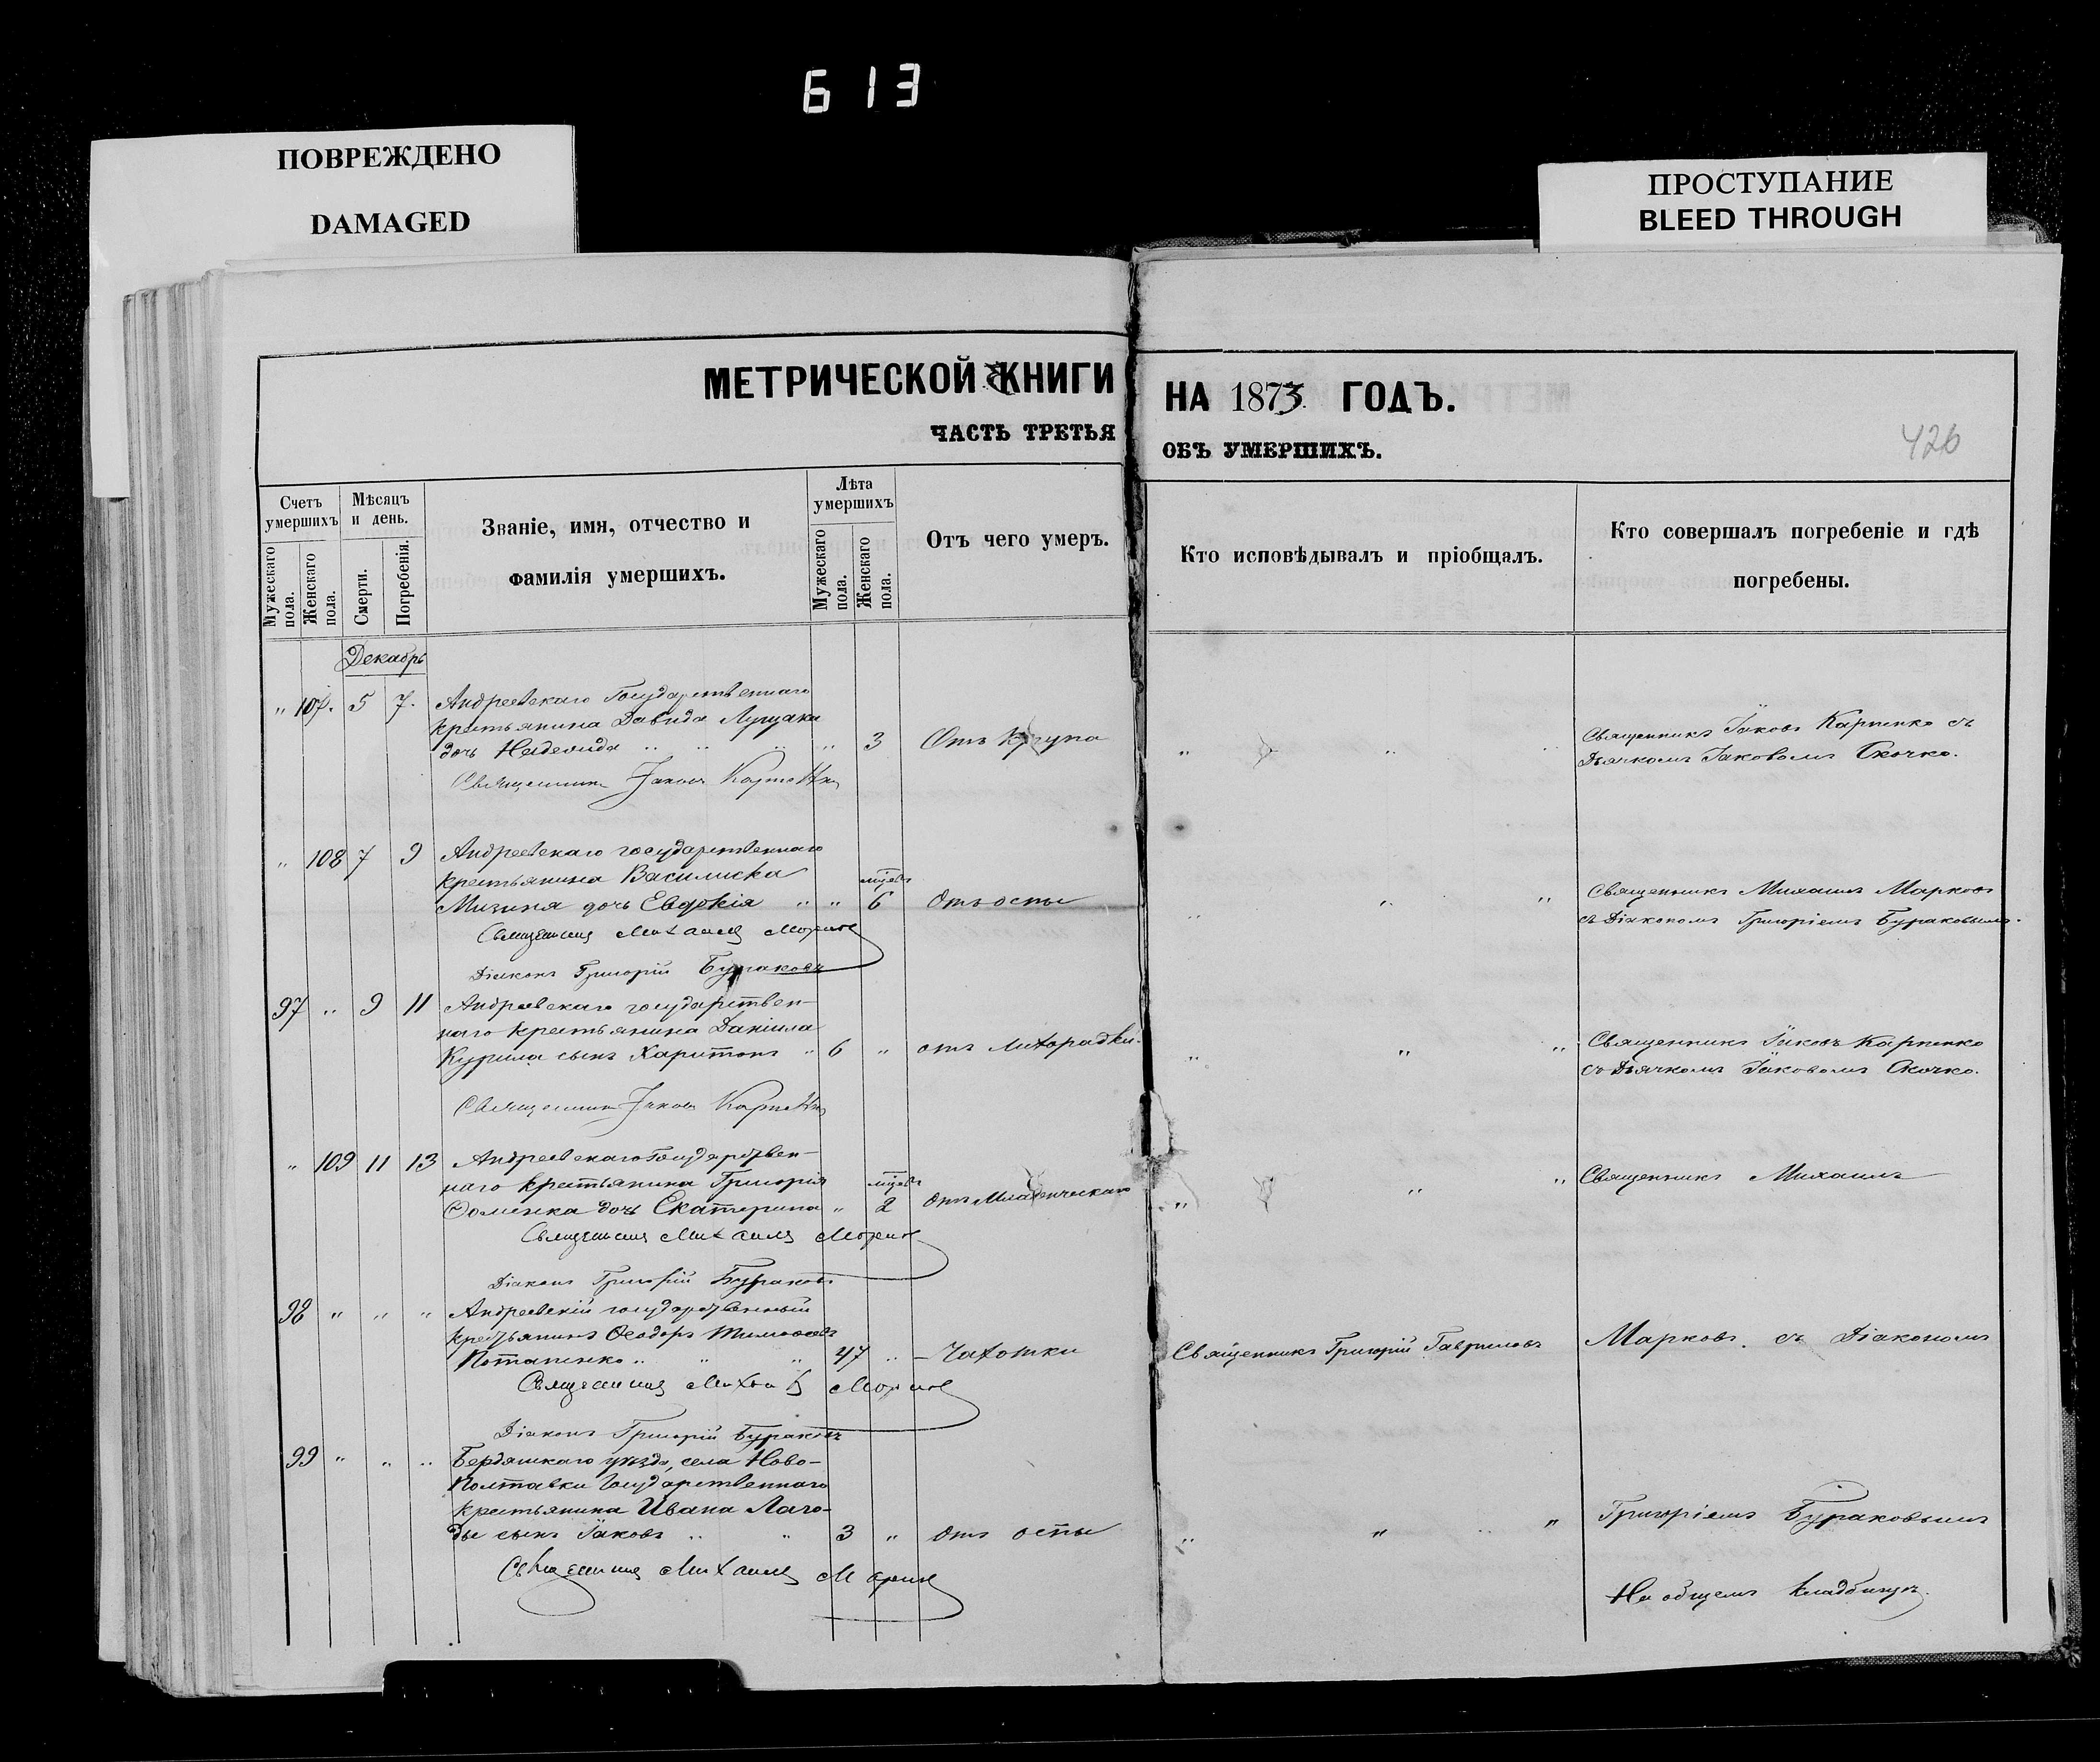 613
ПОВРЕЖДЕНО
DAMAGED
ПРОСТУПАНИЕ
BLEED THROUGH
МЕТРИЧЕСКОЙ КНИГИ НА 1873 ГОДЪ.
ЧАСТЬ ТРЕТЬЯ ОБЪ УМЕРШИХЪ.
426
Счетъ умершихъ
Мужескаго пола.
Женскаго пола.
Мѣсяцъ и день.
Смерти.
Погребенія.
Званіе, имя, отчество и
фамилія умершихъ.
Лѣта умершихъ
Мужескаго пола.
Женскаго пола.
Отъ чего умеръ.
Кто исповѣдывалъ и пріобщалъ.
Кто совершалъ погребеніе и гдѣ
погребены.
Декабрь
„ 107. 5 7. Андреевскаго Государственнаго
крестьянина Давида
дочь „ „ „ „ 3 Отъ Крупа „ „ „
Священникъ Іаковъ Карпенко съ
Дьячкомъ Іаковомъ Скочко.
Священникъ Іаковъ Карпенко
„ 108 7 9 Андреевскаго государственнаго
крестьянина Василиска мѣсец
Мизина дочь Евдокія „ „ 6 Отъ оспы „ „ „
Священникъ Михаилъ Марковъ
съ Діакономъ Григоріемъ Бураковымъ.
Священникъ Михаилъ Марковъ
Діаконъ Григорій Бураковъ
97 „ 9 11 Андреевскаго государствен-
наго крестьянина Даніила
Курила сынъ Харитонъ „ 6 „ отъ лихорадки. „ „ „
Священникъ Іаковъ Карпенко
съ Дьячкомъ Іаковомъ Скочко.
Священникъ Іаковъ Карпенко
„ 109 11 13 Андреевскаго Государствен-
наго крестьянина Григорія
Фоменка дочь Екатерина „ 2 отъ Младенческаго „ „ „
Священникъ Михаилъ
Священникъ Михаилъ Марковъ
Діаконъ Григорій Бураковъ
98 „ „ „ Андреевскій государственный
крестьянинъ Ѳеодоръ Тимоѳеевъ
Потапенко „ „ „ 47 „ Чахотки Священникъ Григорій Гавриловъ
Марковъ. съ Діакономъ
Священникъ Михаилъ Марковъ
Діаконъ Григорій Бураковъ
99 „ „ „ Бердянскаго уѣзда, села Ново-
Полтавки Государственнаго
крестьянина Ивана Лаго-
ды сынъ Іаковъ „ „ 3 „ отъ оспы „ „ „ „
Григоріемъ Бураковымъ
Священникъ Михаилъ Марковъ
На общемъ кладбищѣ.